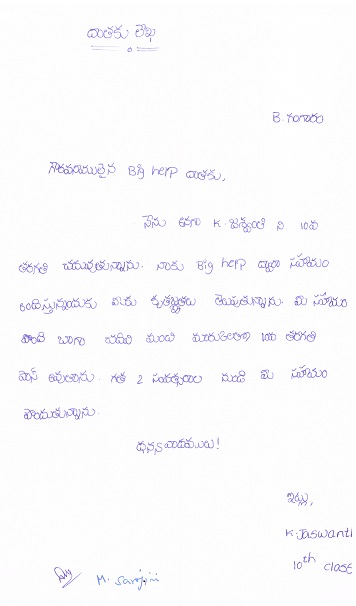 దాతకు లేఖ
B. గంగారు
గౌరవనీయులైన Big help దాతకు,
నేను అనగా K. జశ్వంతి ని 10వ
తరగతి చదువుతున్నాను. నాకు Big help ద్వారా సహాయం
అందిస్తున్నందుకు మీకు కృతజ్ఞతలు తెలుపుతున్నాను. మీ సహాయం
పొంది బాగా చదివి మంచి మార్కులతో 10వ తరగతి
పాస్ అవుతాను. గత 2 సంవత్సరాల నుండి మీ సహాయం
పొందుతున్నాను.
ధన్యవాదములు!
ఇట్లు,
K. Jaswanth
10th class
M. Sarojini